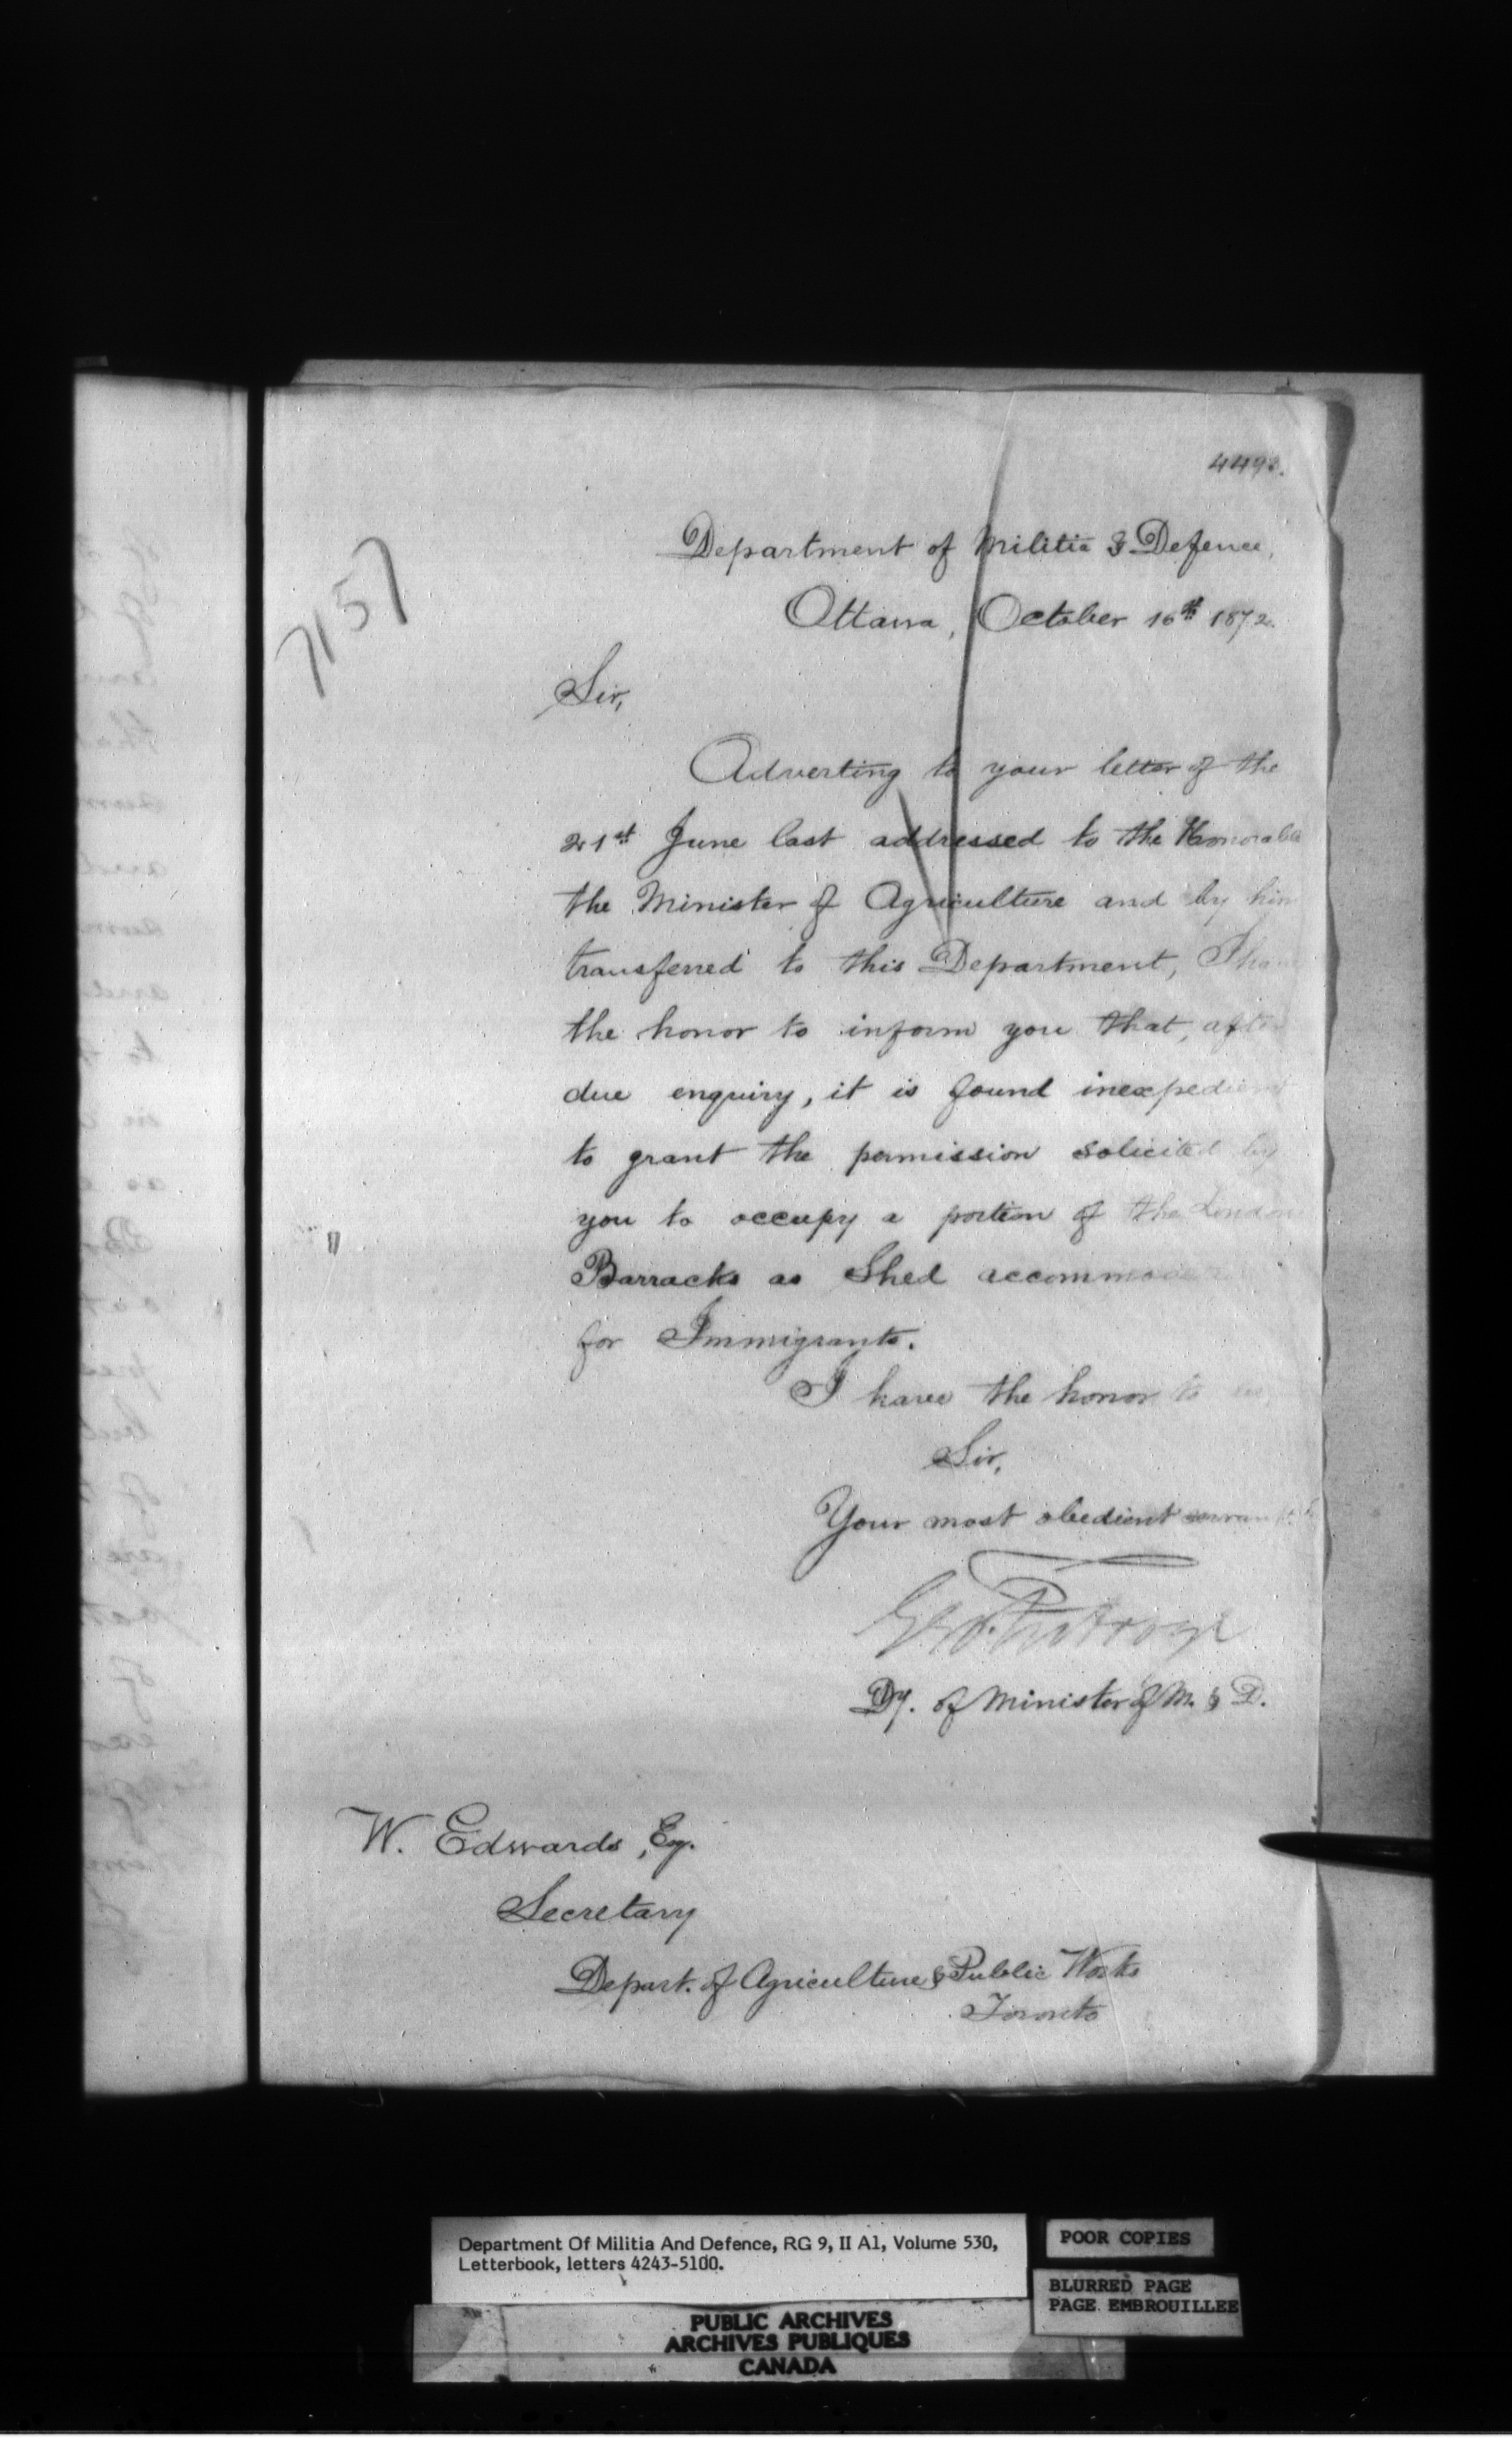 4493.
7157
Department of Militia & Defence,
Ottawa, October 16th 1872.
Sir,
Adverting to your letter of the
21st June last addressed to the Honorable
the Minister of Agriculture and by him
transferred to this Department, I have
the honor to inform you that, after
due enquiry, it is found inexpedient
to grant the permission solicited by
you to occupy a portion of the London
Barracks as Shed accommoda
for Immigrants.
I have the honor to be,
Sir,
Your most obedient servant
Geo. Futvoye
Dy. of Minister of M. & D.
W. Edwards, Esq.
Secretary
Depart. of Agriculture & Public Works
Toronto
Department Of Militia And Defence, RG 9, II A1, Volume 530,
Letterbook, letters 4243-5100.
POOR COPIES
BLURRED PAGE
PAGE EMBROUILLEE
PUBLIC ARCHIVES
ARCHIVES PUBLIQUES
CANADA